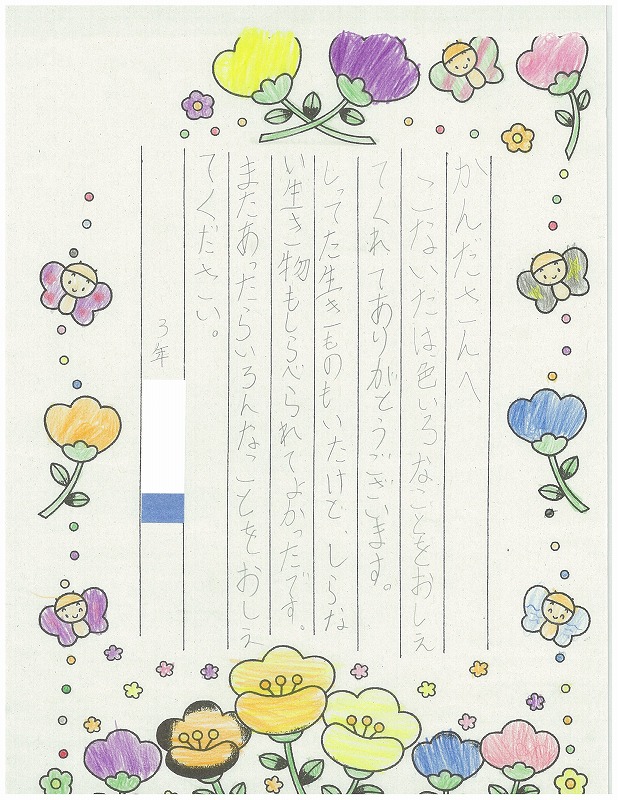 かんださんへ
こないたは色いろなことをおしえ
てくれてありがとうございます。
しってた生きものもいたけど、しらな
い生き物もしらべられてよかったです。
またあったらいろんなことをおしえ
てください。
3年